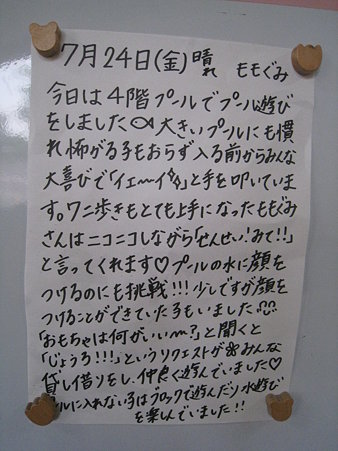 7月24日(金)晴れ ももぐみ
今日は4階プールでプール遊び
をしました大きいプールにも慣
れ怖がる子もおらず入る前からみんな
大喜びで「イェ〜イ」と手を叩いていま
す。ワニ歩きもとても上手になったももぐみ
さんはニコニコしながら「せんせい!みて!!」
と言ってくれます♡プールの水に顔を
つけるのにも挑戦!!!少しですが顔を
つけることができていた子もいました
「おもちゃは何がいい?」と聞くと
「じょうろ!!!」というリクエストが みんな
貸し借りをし、仲良く遊んでいました♡
ールに入れない子はブロックで遊んだり水遊び
を楽しんでいました!!